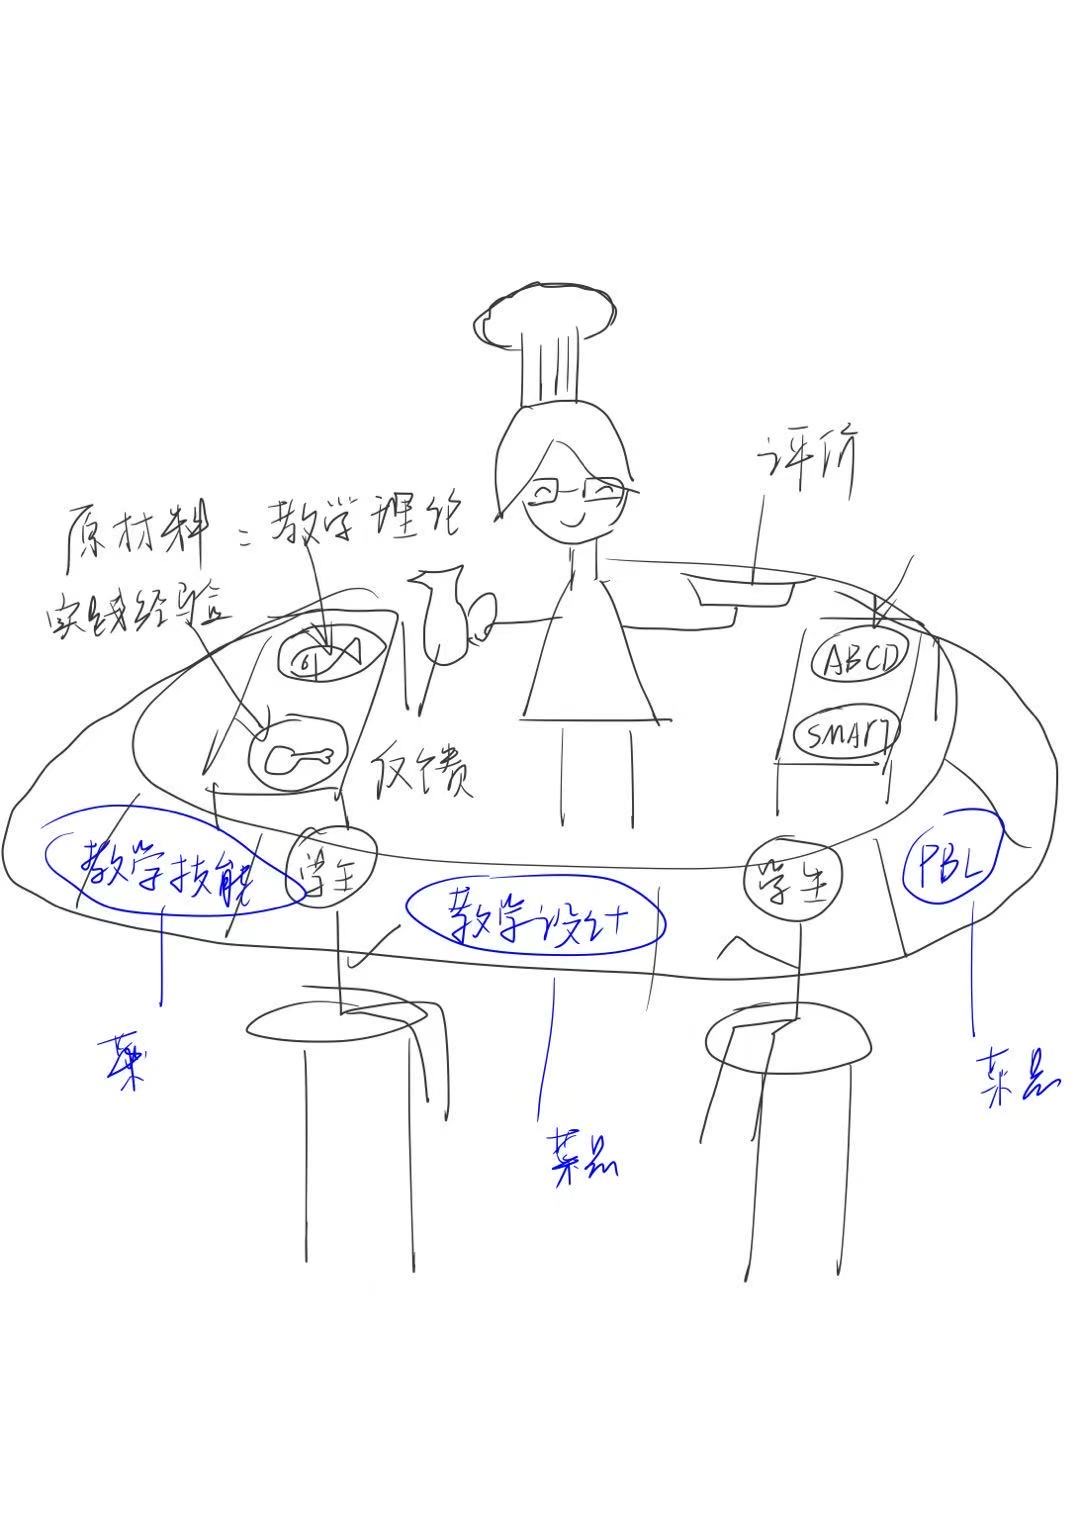 评价
原材料：教学理论
实践经验
ABCD
SMART
反馈
教学技能
学生
教学设计
学生
PBL
菜
菜品
菜品